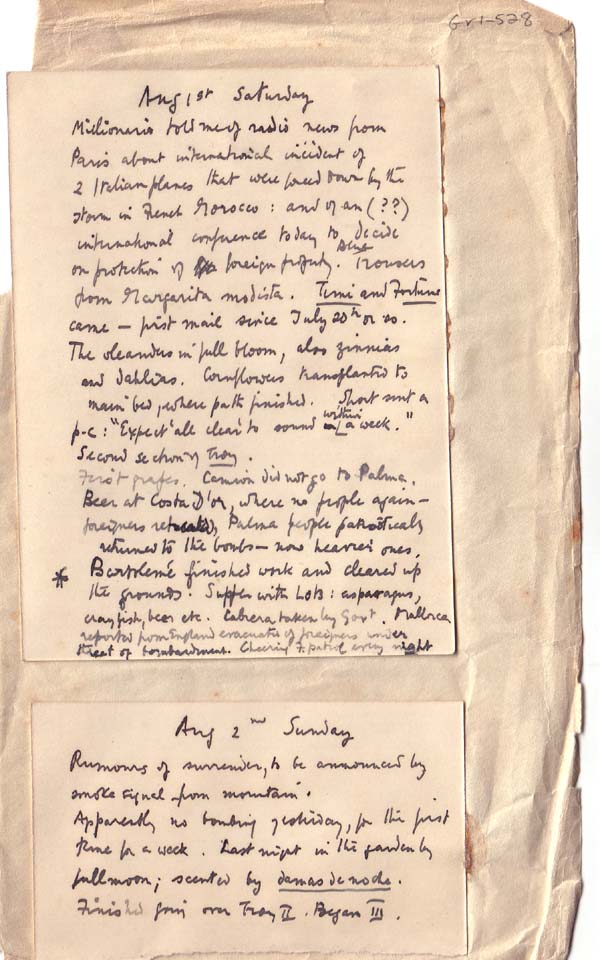 Gv1-528
Aug 1st Saturday
Milionario told me of radio news from
Paris about international incident of
2 Italian planes that were forced down by the
storm in French Morocco : and of an (??)
international conference today to decide
on protection of foreign property. Blue Trousers
from Margarita modista. Time and Fortune
came — first mail since July 20th or so.
The oleanders in full bloom, also zinnias
and dahlias. Cornflowers transplanted to
main bed, where path finished. Short sent a
p-c : "Expect 'all clear' to sound within a week."
Second section of Troy.
First grapes. Camion did not go to Palma.
Beer at Costa D'or, where no people again —
foreigners, Palma people patriotically
returned to the bombs — now heavier ones.
* Bartolemé finished work and cleared up
the grounds. Supper with L&B : asparagus,
crayfish, beer etc. Cabrera taken by Govt. Mallorca
reported from England evacuated of foreigners under
threat of bombardment. Cheering F. patrol every night
Aug 2nd Sunday
Rumours of surrender, to be announced by
smoke signal from mountain.
Apparently no bombing yesterday, for the first
time for a week. Last night in the garden by
full moon; scented by damas de noche.
Finished going over Troy II. Began III.